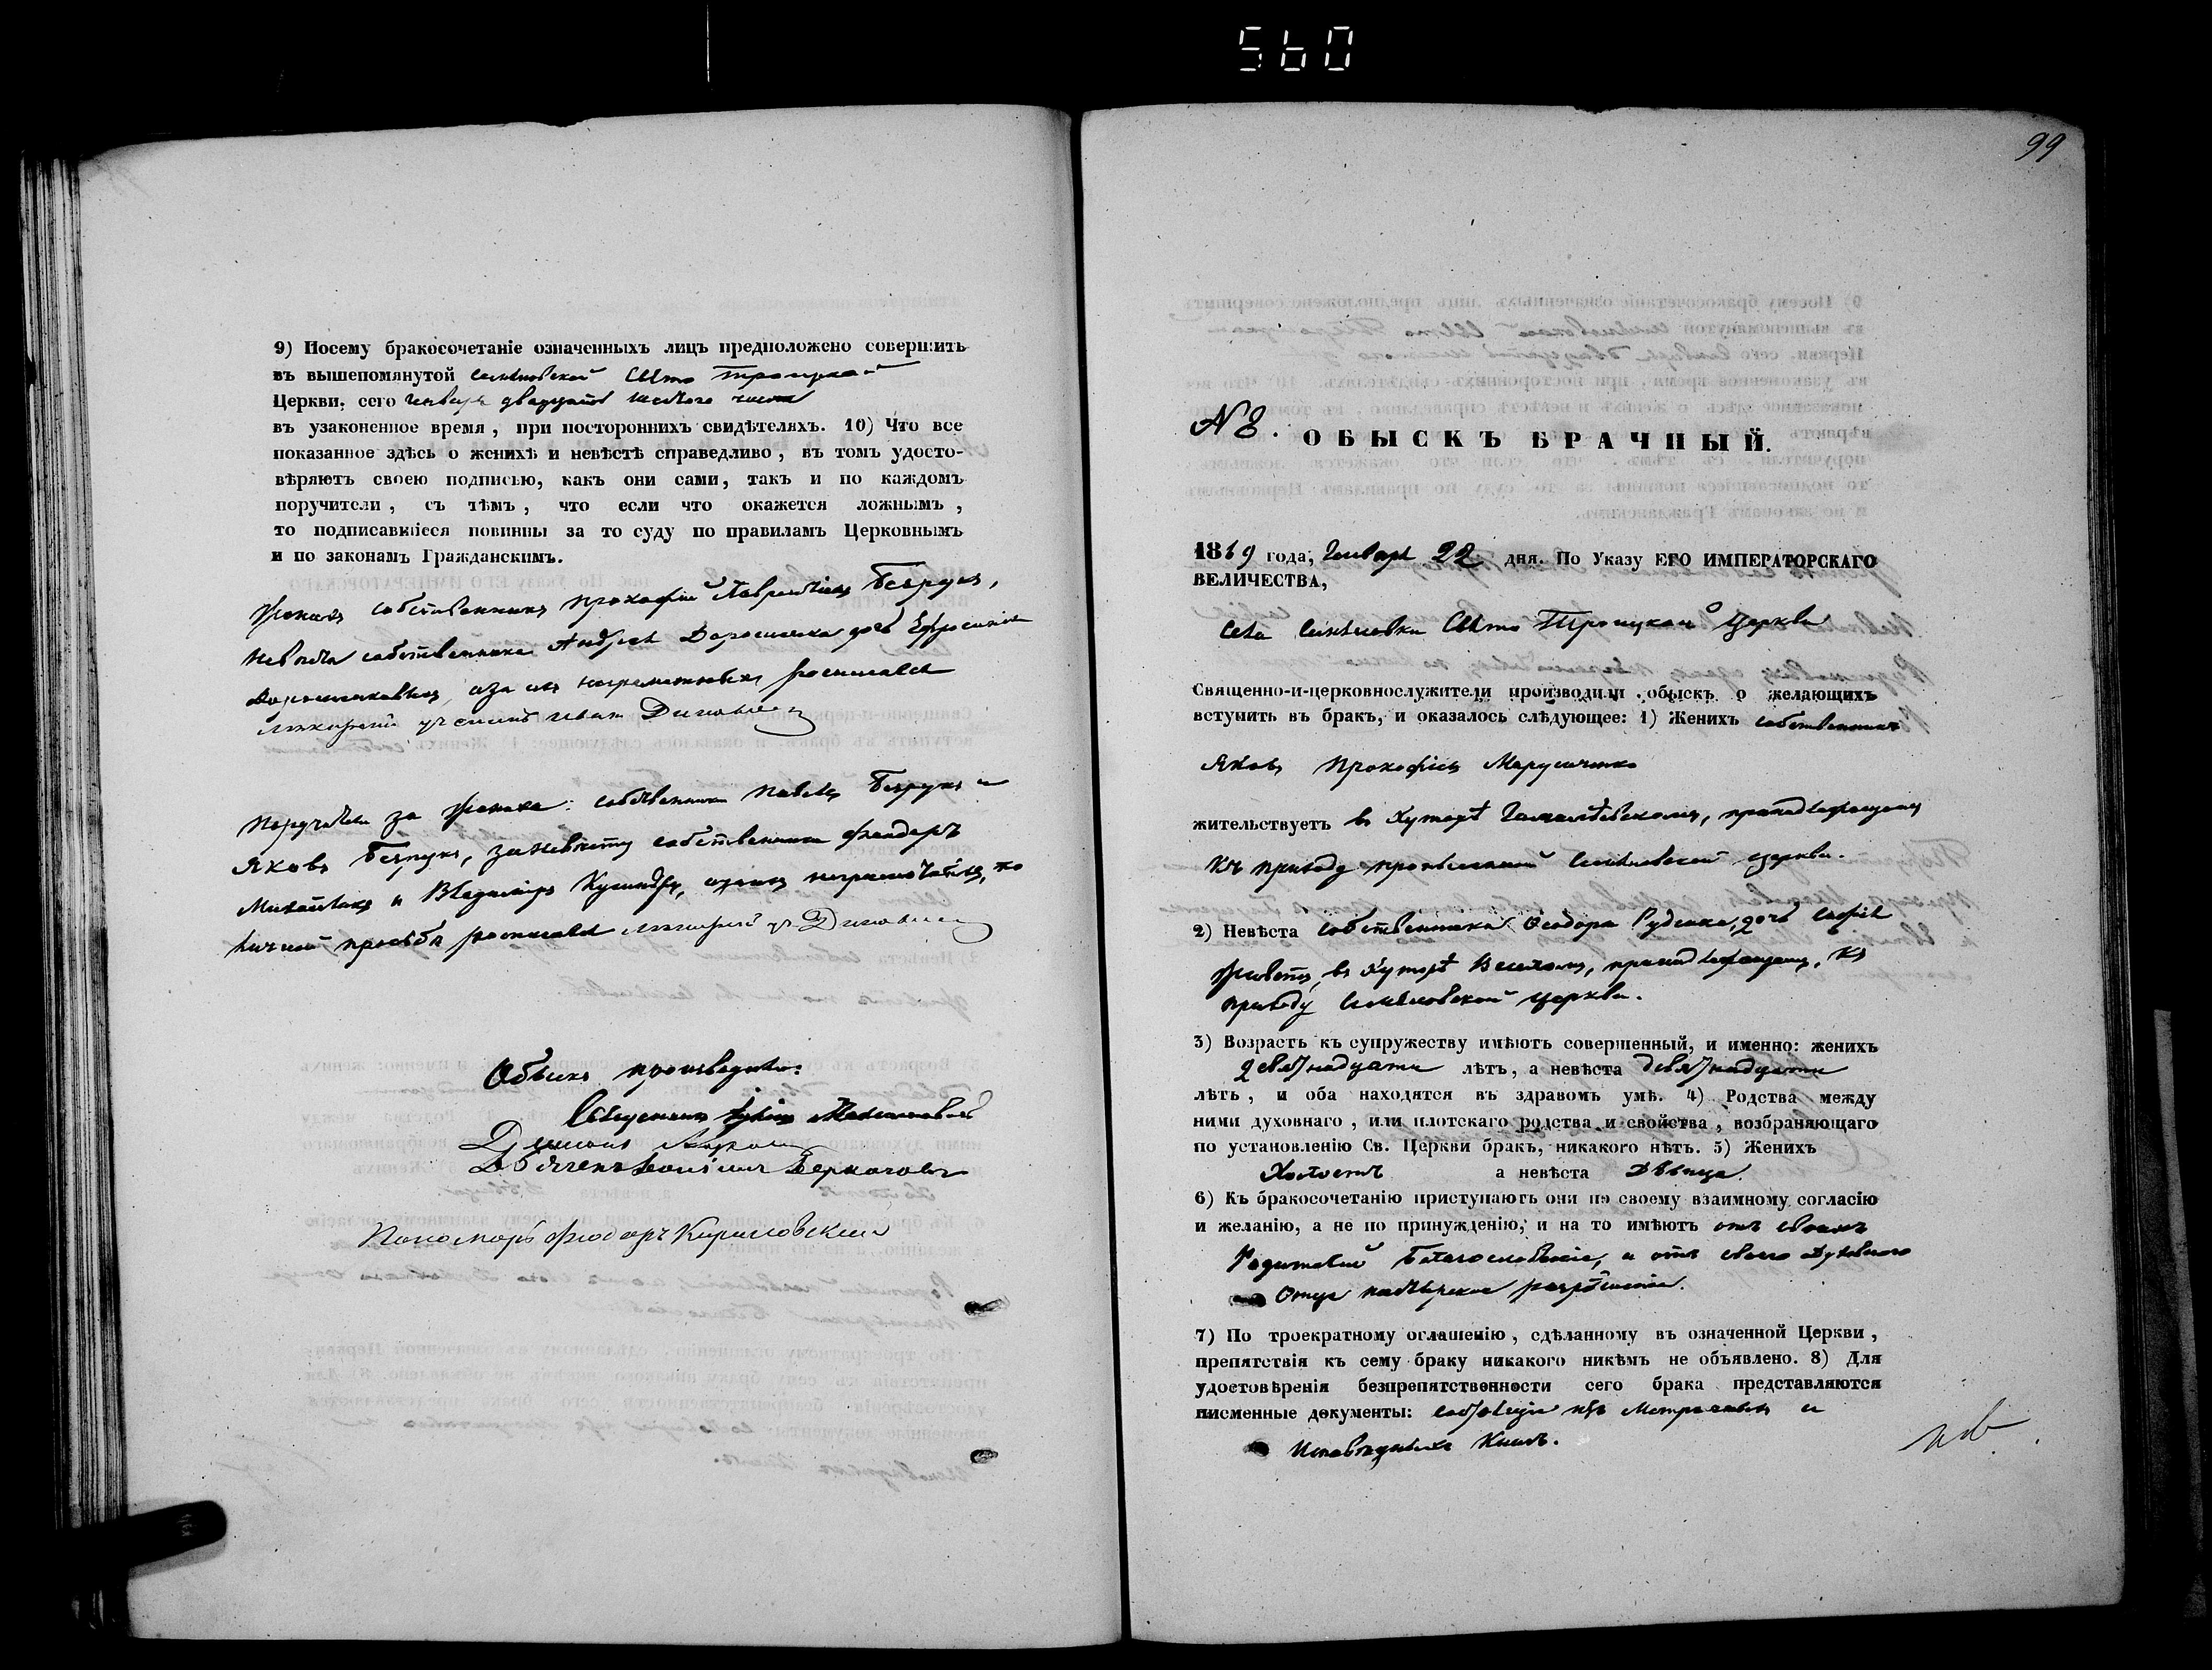 560
9) Посему бракосочетаніе означенныхъ лицъ предположено совершить
въ вышепомянутой Свято Троицкой
Церкви, сего Января двадцать шестого числа
въ узаконенное время, при постороннихъ свидѣтеляхъ. 10) Что все
показанное здѣсь о женихѣ и невѣстѣ справедливо, въ томъ удосто-
вѣряютъ своею подписью, какъ они сами, такъ и по каждомъ
поручители, съ тѣмъ, что если что окажется ложнымъ,
то подписавшіеся повинны за то суду по правиламъ Церковнымъ
и по законамъ Гражданскимъ.
Женихъ собственникъ Прокофій Безрукъ,
Невѣста собственника Андрея дочь Ефросинія
а за ихъ неграмотныхъ росписался
Иванъ
Поручители за жениха: собственники Павелъ Безрукъ и
Яковъ Безрукъ, за невѣсту собственники Феодоръ
Михайликъ и Владиміръ а за ихъ неграмотныхъ, по
личной просьбѣ росписался
Обыскъ производили:
Священникъ
Дьячекъ
Пономарь Феодоръ Кириловскій
99
N 8. ОБЫСКЪ БРАЧНЫЙ.
1869 года, Января 22 дня. По Указу ЕГО ИМПЕРАТОРСКАГО
ВЕЛИЧЕСТВА,
Села Свято Троицкой Церкви
Священно-и-церковнослужители производили обыскъ о желающихъ
вступить въ бракъ, и оказалось слѣдующее: 1) Женихъ собственникъ
Яковъ Прокофіевъ Марусиченко
жительствуетъ въ Хуторѣ принадлежащемъ
къ приходу церкви.
2) Невѣста собственника Феодора дочь Софія
живетъ въ Хуторѣ Веселомъ, принадлежащемъ къ
приходу церкви.
3) Возрастъ къ супружеству имѣютъ совершенный, и именно: женихъ
девятнадцати лѣтъ, а невѣста девятнадцати
лѣтъ, и оба находятся въ здравомъ умѣ. 4) Родства между
ними духовнаго, или плотскаго родства и свойства, возбраняющаго
по установленію Св. Церкви бракъ, никакого нѣтъ. 5) Женихъ
Холостъ а невѣста Дѣвица.
6) Къ бракосочетанію приступаютъ они по своему взаимному согласію
и желанію, а не по принужденію, и на то имѣютъ отъ своихъ
Родителей Благословеніе, и отъ своего Духовного
Отца пастырское разрѣшеніе.
7) По троекратному оглашенію, сдѣланному въ означенной Церкви,
препятствія къ сему браку никакого никѣмъ не объявлено. 8) Для
удостовѣренія безпрепятственности сего брака представляются
писменные документы: изъ Метрическихъ и
Исповѣдныхъ Книгъ.